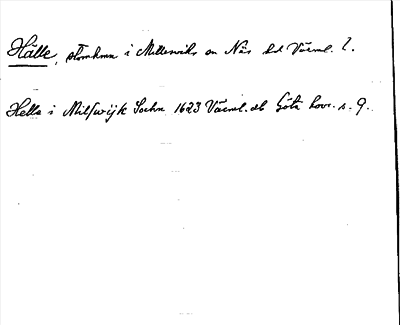 Hälle, storhmn i Millesviks sn Näs hd Värml. l.
Hella i Milswijk Sochn 1623 Värml. ab Göta hovr. s. 9.